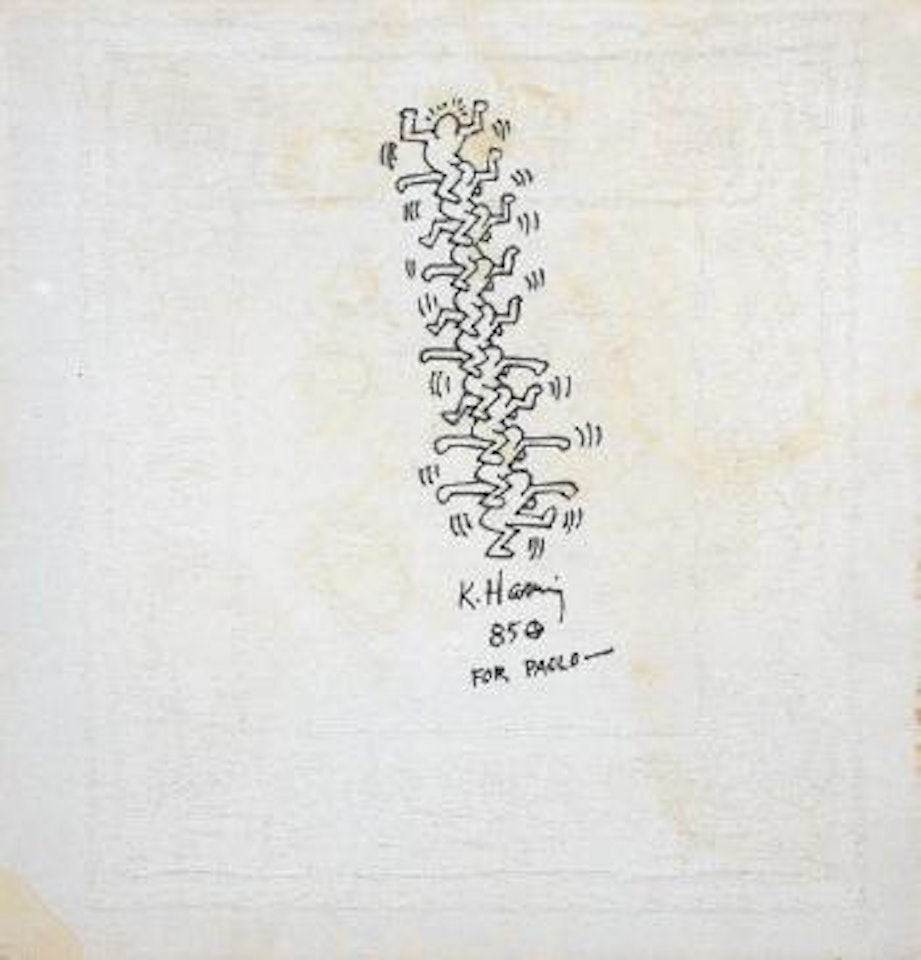 K. Haring
85
FOR PAOLO—